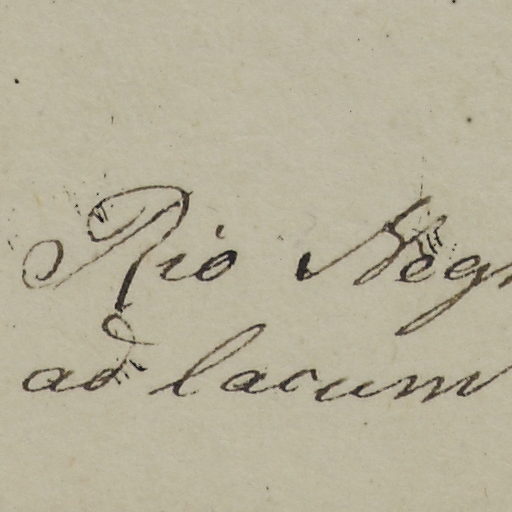 Rio Neg
ad lacum